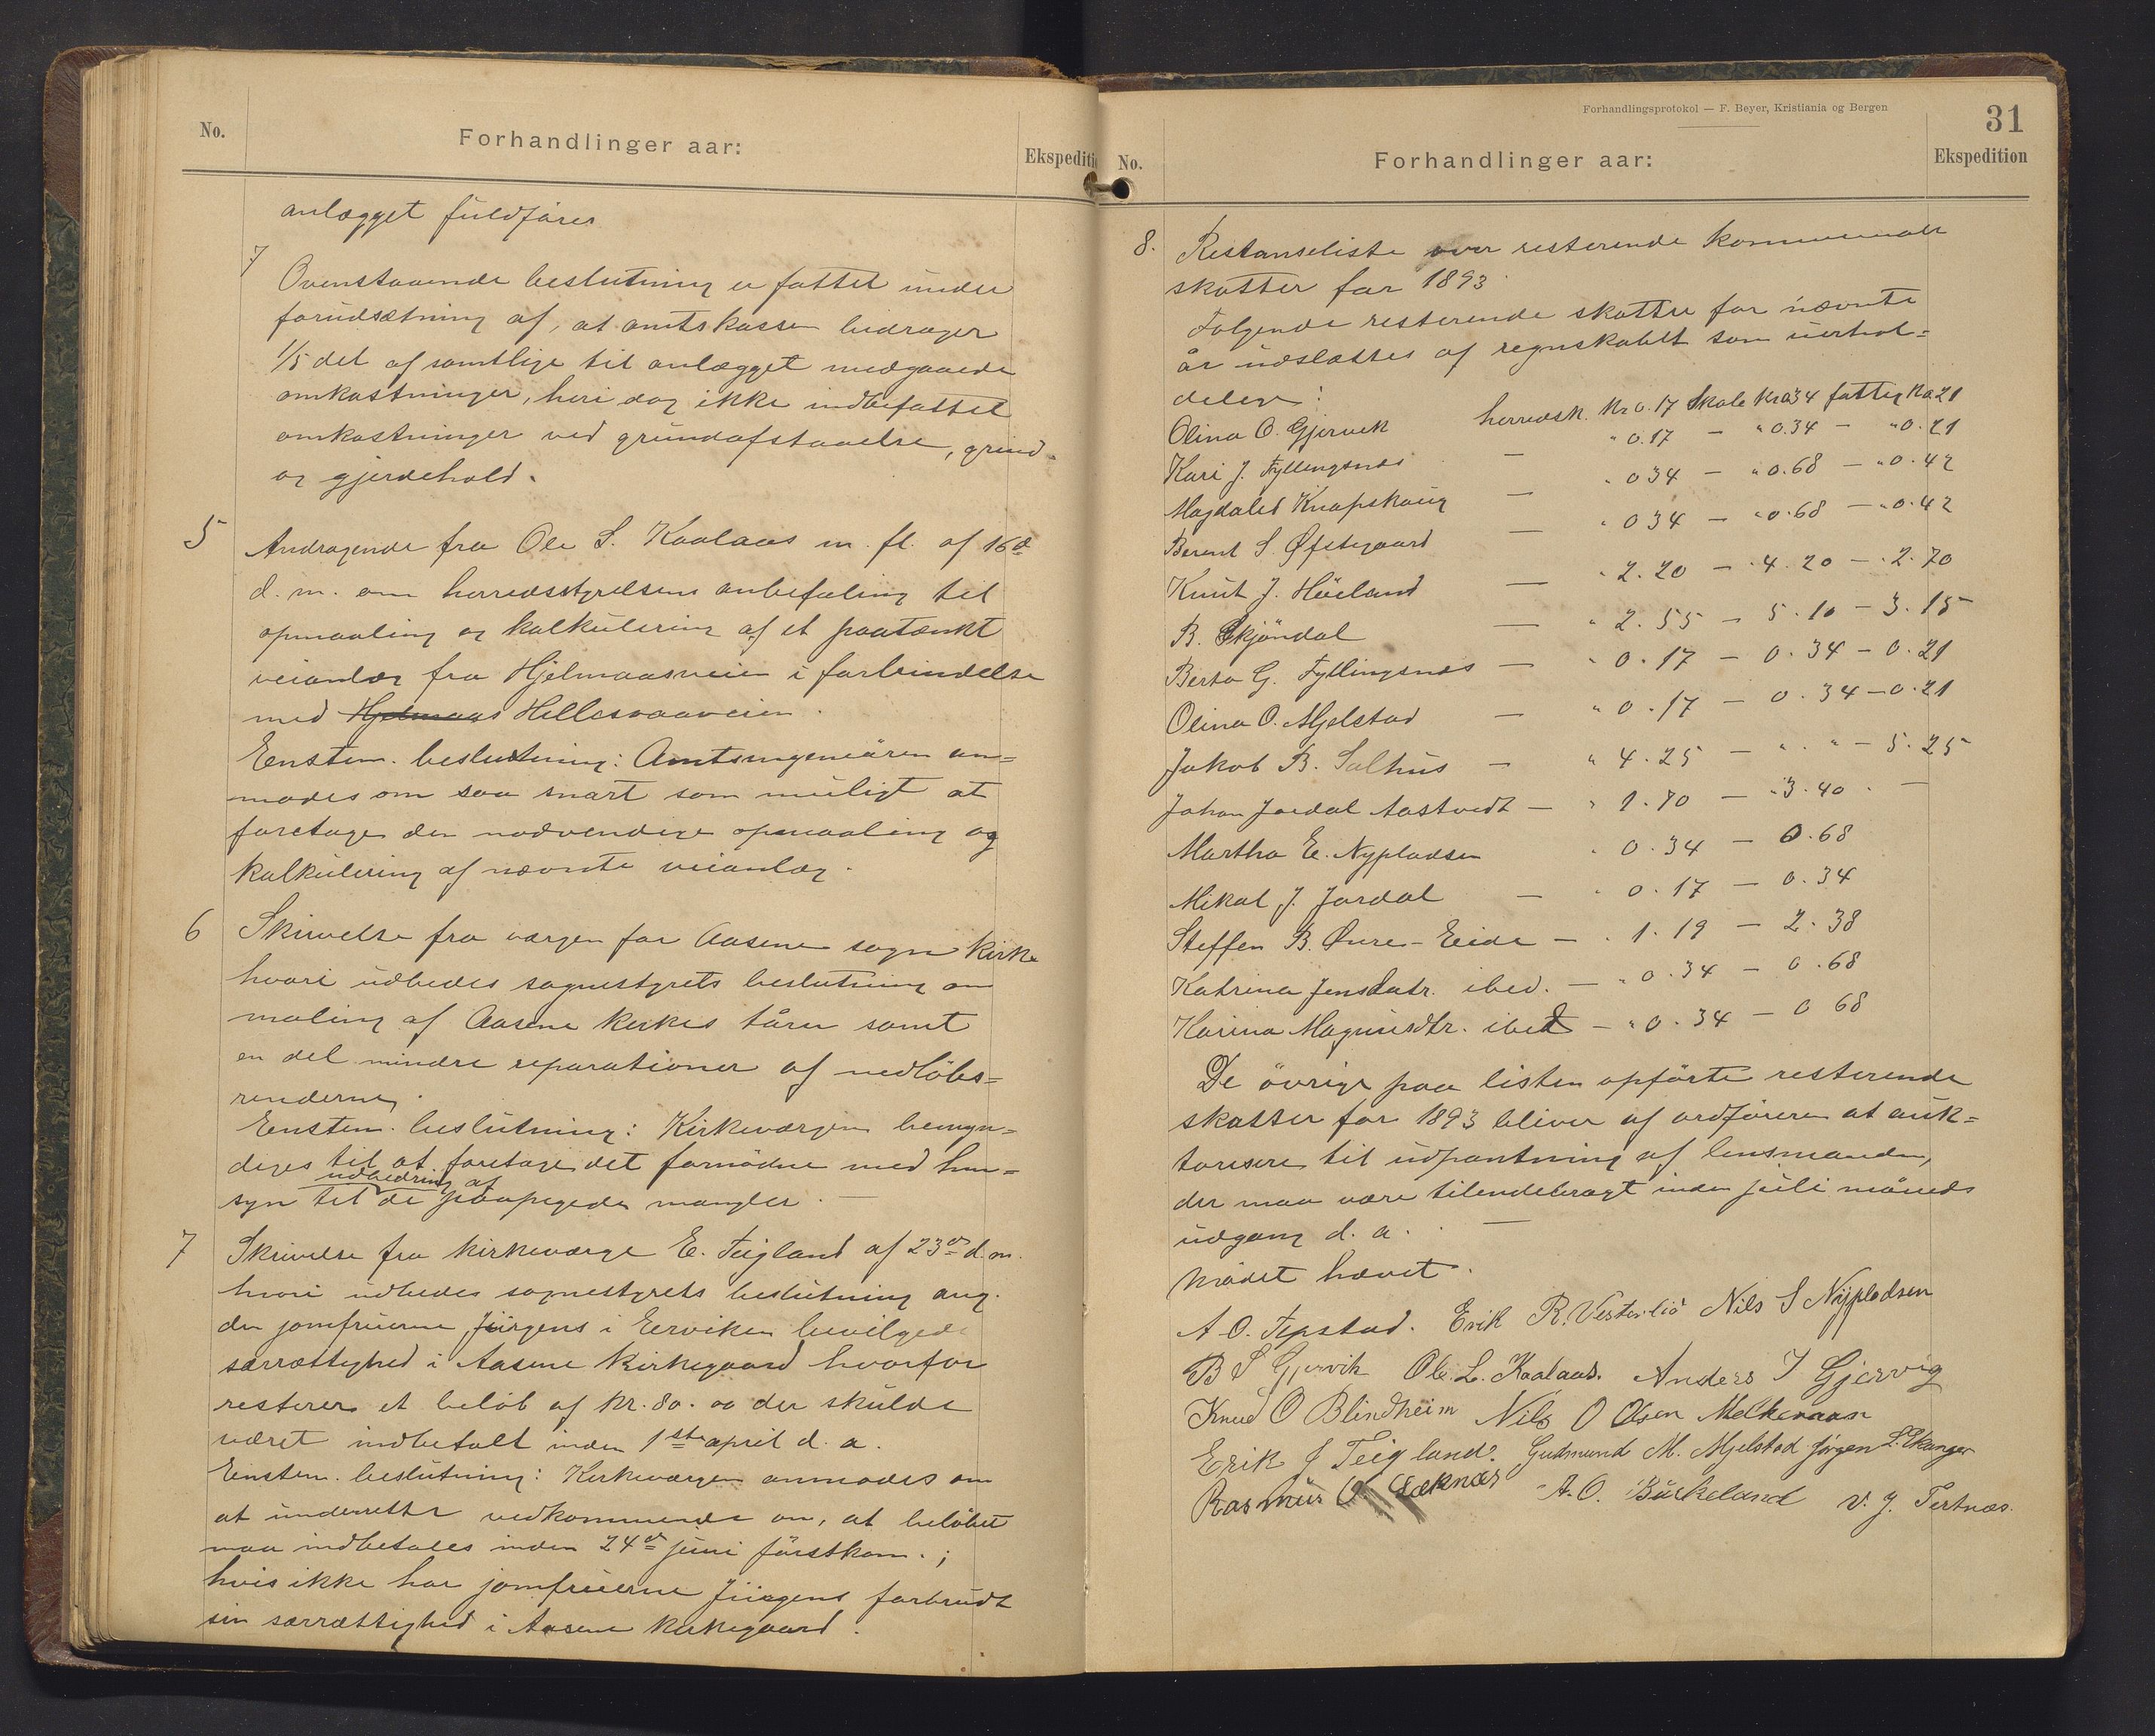 No.
Forhandlinger aar:
Ekspediti
anlægget fuldføres
7
Ovenstaaende beslutning er fattet under
forudsætning af, at amtskassen bidrager
1/5 del af samtlige til anlægget medgaaede
omkostninger, heri dog ikke indbefattet
omkostninger ved grundafstaaelse, grind-
og gjerdehold.
5 Andragende fra Ole L. Kaalaas m. fl. af 16de
d. m. om herredsstyrelsens anbefaling til
opmaaling og kalkulering af et paatænkt
veianlæg fra Hjelmaasveien i forbindelse
med Hjelmaas Hellesvaaveien.
Enstem. beslutning: Amtsingeniören an=
modes om saa snart som muligt at
foretage den nødvendige opmaaling og
kalkulering af nævnte veianlæg.
6 Skrivelse fra værgen for Aasene sogns kirke
hvori udbedes sognestyrets beslutning om
maling af Aasene kirkes tårn samt
en del mindre reparationer af nedløbs=
renderne,
Enstem. beslutning: Kirkeværgen bemyn=
diges til at foretage det fornødne med hen=
udbedring af
syn til de paapegede mangler.
7 Skrivelse fra kirkeværge E. Teigland af 23de d. m.
hvori udbedes sognestyrets beslutning ang.
den jomfruerne Jürgens i Eerviken bevilgede
særrættighed i Aasene kirkegaard hvorfor
resterer et beløb af kr. 80.00 der skulde
været indbetalt inden 1ste april d. a.
Enstem. beslutning: Kirkeværgen anmodes om
at underrette vedkommende om, at beløbet
maa indbetales inden 24de juni førstkom.;
hvis ikke har jomfruerne Jürgens forbrudt
sin særrættighed i Aasene kirkegaard.
Forhandlingsprotokol — F. Beyer, Kristiania og Bergen
31
No.
Forhandlinger aar:
Ekspedition
8. Restanseliste over resterende kommunale
skatter for 1893.
Følgende resterende skatter for nævnte
år udslættes af regnskabet som uerhol=
delige:
Olina O. Gjervik herredsk. Kr 0.17 Skole Kr 0.34 fattig Kr 0.21
Kari J. Fyllingsnes — " 0.17 — " 0.34 — " 0.21
Magdaled Knapskaug — " 0 34 — " 0.68 — " 0.42
Berent S. Øfstegaard — " 0 34 — " 0.68 — " 0.42
Knut J. Håeland — " 2.20 — " 4.20 — " 2.70
B. Skjöndal — " 2.55 — 5.10 — 3.15
Berta G. Fyllingsnes — " 0.17 — 0.34 — 0.21
Olina O. Mjelstad — " 0.17 — 0.34 — 0.21
Jakob B. Salhus — " 4.25 — " . " — 5.25
Johan Jordal Aastvedt — " 1.70 — " 3.40 . —
Martha E. Nypladsen " 0.34 — 0.68
Mikal J. Jordal — " 0.17 — 0.34
Steffen B. Øvre-Eide — " 1.19 — 2.38
Katrina Jensdatr. ibed. — " 0.34 — 0.68
Karina Magnusdtr. ibed — " 0.34 — 0 68
De øvrige paa listen opførte resterende
skatter for 1893 bliver af ordføreren at auk=
torisere til udpantning af lensmanden,
der maa være tilendebragt inden juli måneds
udgang d. a. —
Mødet hævet.
A. O. Tepstad. Erik R. Vesterlid Nils S Nypladsen
B S Gjervik Ole L. Kaalaas. Anders I Gjervig
Knud O Blindheim Nils O Olsen Melkeraaen
Erik J Teigland. Gudmund M. Mjelstad Jørgen L. Ekanger
Rasmus O. Læknæs A. O. Birkeland V. J. Tertnæs.